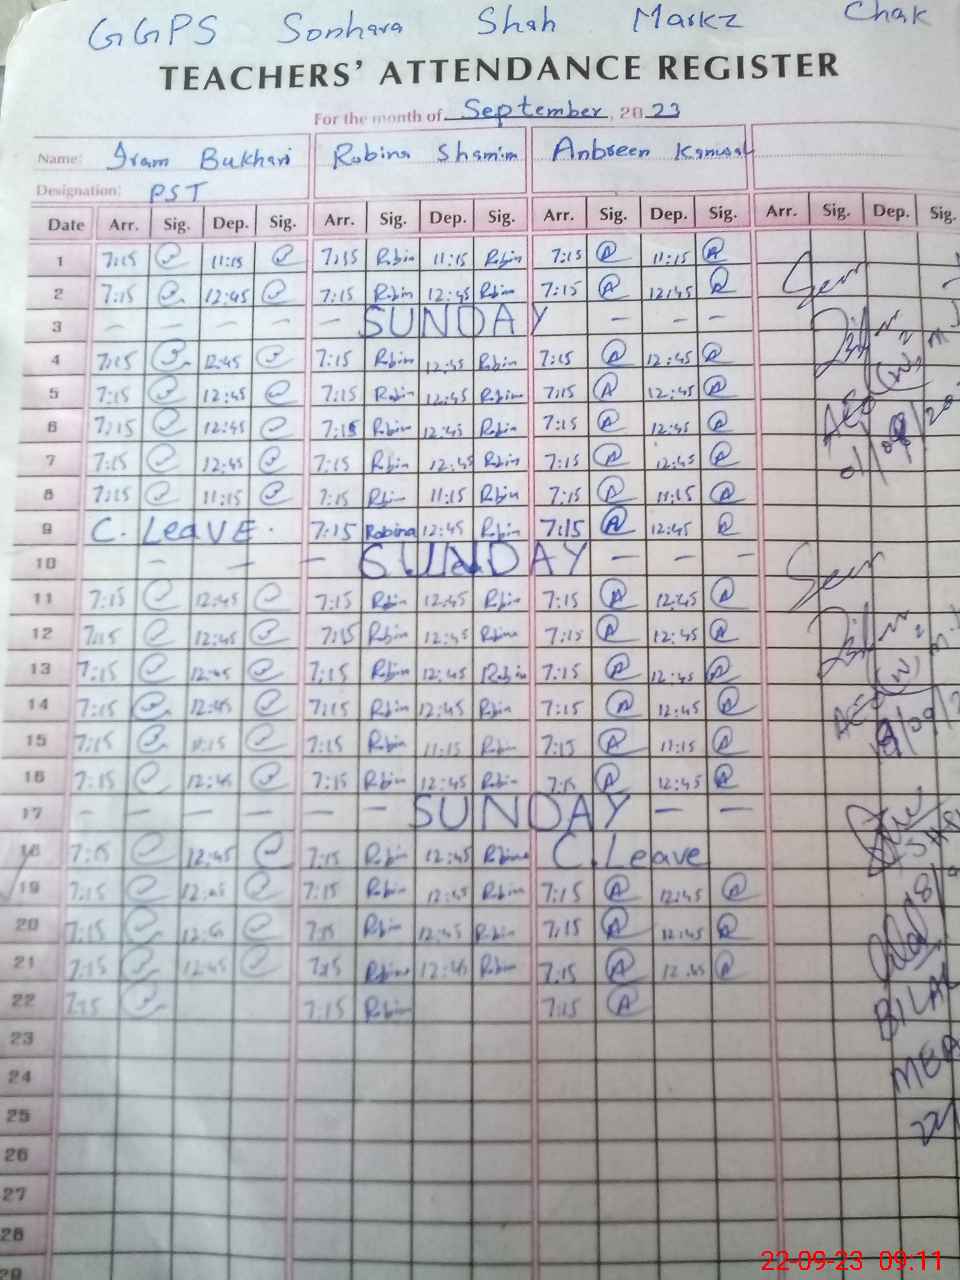 GGPS Sonhara Shah Markz Chak
TEACHERS' ATTENDANCE REGISTER
For the month of September, 2023
Name: Iram Bukhari Robina Shamim Anbreen Kanwal
Designation: PST
Date Arr. Sig. Dep. Sig. Arr. Sig. Dep. Sig. Arr. Sig. Dep. Sig. Arr. Sig. Dep. Sig.
1 7:15 11:15 7:15 Robin 11:15 Robin 7:15 A 11:15 A
2 7:15 12:45 7:15 Robin 12:45 Robin 7:15 A 12:45 A
3 – – – – – SUNDAY – – –
4 7:15 12:45 7:15 Robin 12:45 Robin 7:15 A 12:45 A
5 7:15 12:45 7:15 Robin 12:45 Robin 7:15 A 12:45 A
6 7:15 12:45 7:15 Robin 12:45 Robin 7:15 A 12:45 A
7 7:15 12:45 7:15 Robin 12:45 Robin 7:15 A 12:45 A
8 7:15 11:15 7:15 Robin 11:15 Robin 7:15 A 11:15 A
9 C. Leave. 7:15 Robina 12:45 Robin 7:15 A 12:45 A
10 – – – SUNDAY – – –
11 7:15 12:45 7:15 Robin 12:45 Robin 7:15 A 12:45 A
12 7:15 12:45 7:15 Robin 12:45 Robina 7:15 A 12:45 A
13 7:15 12:45 7:15 Robin 12:45 Robin 7:15 A 12:45 A
14 7:15 12:45 7:15 Robin 12:45 Robin 7:15 A 12:45 A
15 7:15 11:15 7:15 Robin 11:15 Robin 7:15 A 11:15 A
16 7:15 12:45 7:15 Robin 12:45 Robin 7:15 A 12:45 A
17 – – – – – SUNDAY – –
18 7:15 12:45 7:15 Robin 12:45 Robina C. Leave
19 7:15 12:45 7:15 Robin 12:45 Robin 7:15 A 12:45 A
20 7:15 12:45 7:15 Robin 12:45 Robin 7:15 A 12:45 A
21 7:15 12:45 7:15 Robina 12:45 Robin 7:15 A 12:45 A
22 7:15 7:15 Robin 7:15 A
23
24
25
26
27
28
29
Seen
AEO (W) M.
01/09/20
Seen
AEO (W) M.
09/2
BILAL
MEA
22/
22-09-23 09:11